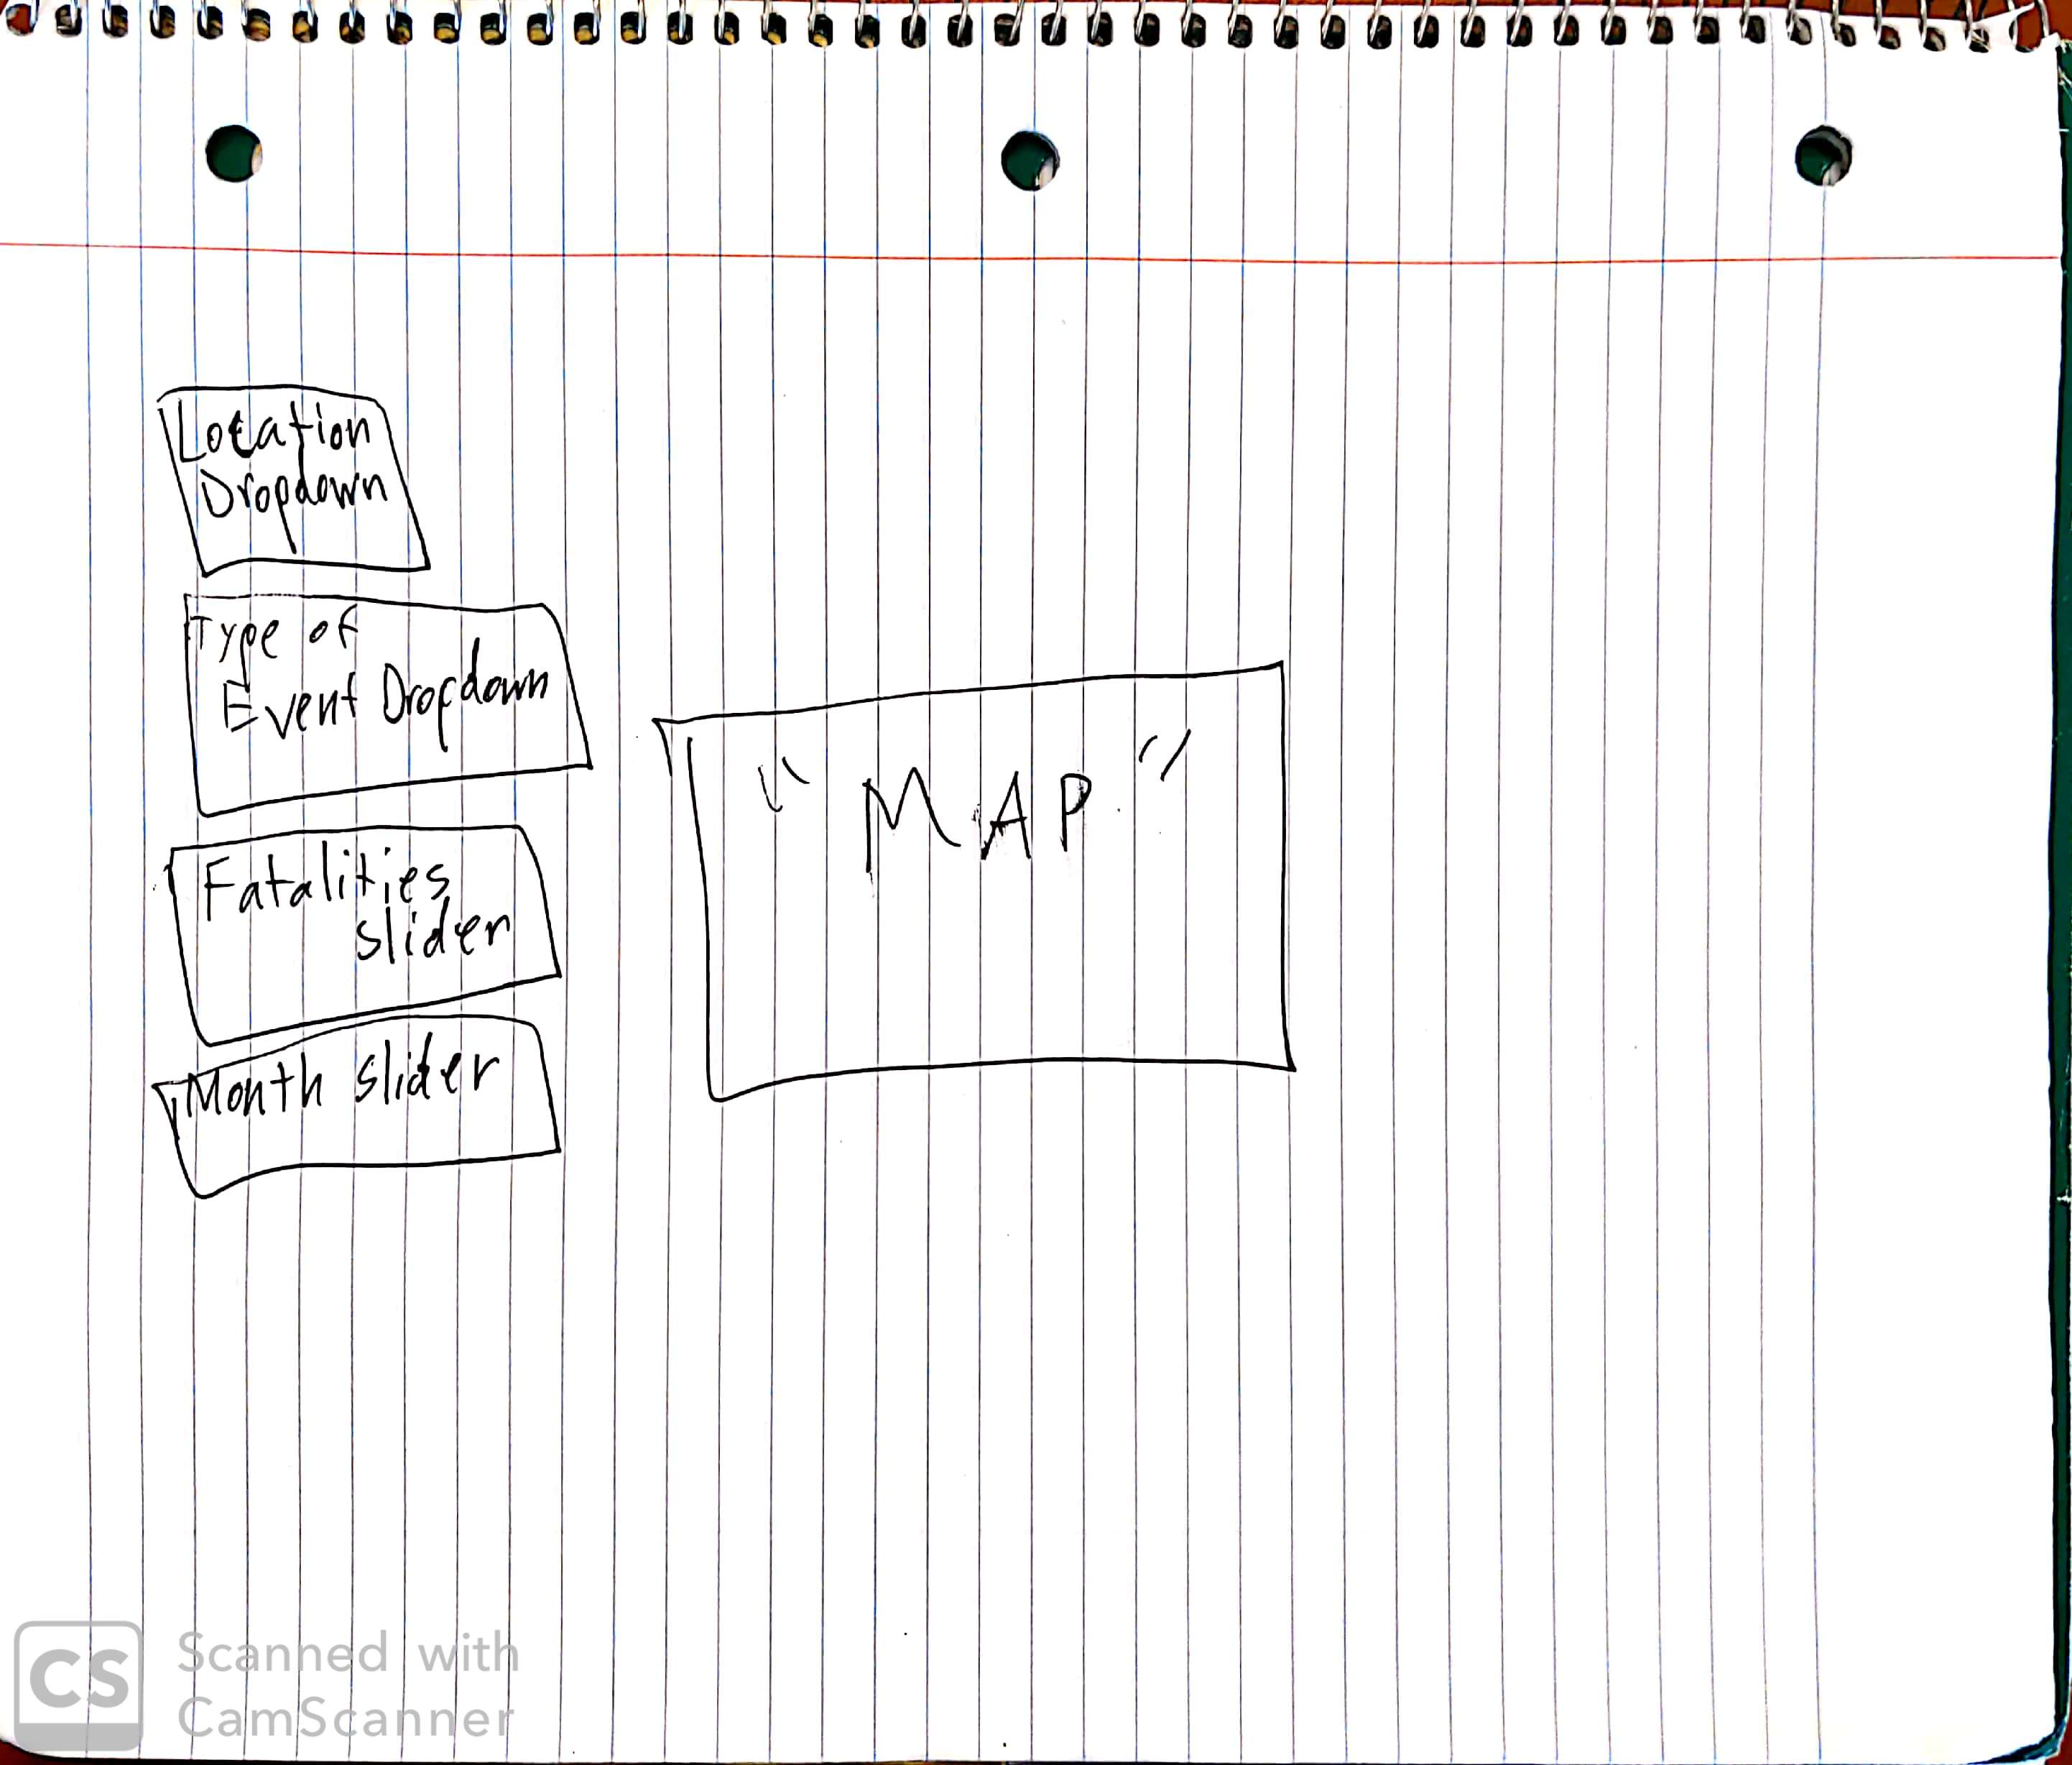 Location
Dropdown
Type of
Event Dropdown
Fatalities
slider
Month slider
"MAP"
CS
Scanned with
CamScanner